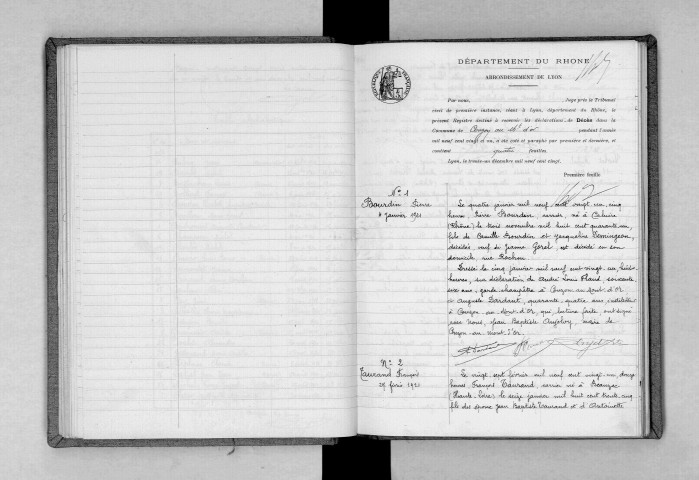 DÉPARTEMENT DU RHONE
ARRONDISSEMENT DE LYON
Par nous, Juge près le Tribunal
civil de première instance, séant à Lyon, département du Rhône, le
présent Registre destiné à recevoir les déclarations de Décès dans la
Commune de Couzon au Mt d'or pendant l'année
mil neuf cent vingt et un, a été coté et paraphé par première et dernière, et
contient quatre feuilles
Lyon, le trente-un décembre mil neuf cent vingt.
Première feuille
No 1
Bourdin Pierre
4 janvier 1921
Le quatre janvier mil neuf cent vingt un, cinq
heures, Pierre Bourdin, né à Caluire
(Rhône) le trois novembre mil huit cent quarante un,
fils de Camille Bourdin et Jacqueline
décédés, veuf de Jeanne Gorel, est décédé en son
domicile, rue Rochon
Dressé le cinq janvier mil neuf cent vingt un, huit
heures, sur déclaration de André Louis soixante
six ans, garde-champêtre à Couzon au Mont d'Or
et Auguste Dardant, quarante quatre ans, instituteur
à Couzon au Mont-d'Or, qui, lecture faite, ont signé
avec Nous, Jean Baptiste maire de
Couzon au Mont d'Or.
No 2
Taurand François
27 février 1921
Le vingt sept février mil neuf cent vingt un, douze
heures, François Taurand, né à Beauzac
(Haute Loire) le seize janvier mil huit cent trente cinq
fils des époux Jean Baptiste Taurand et d'Antoinette